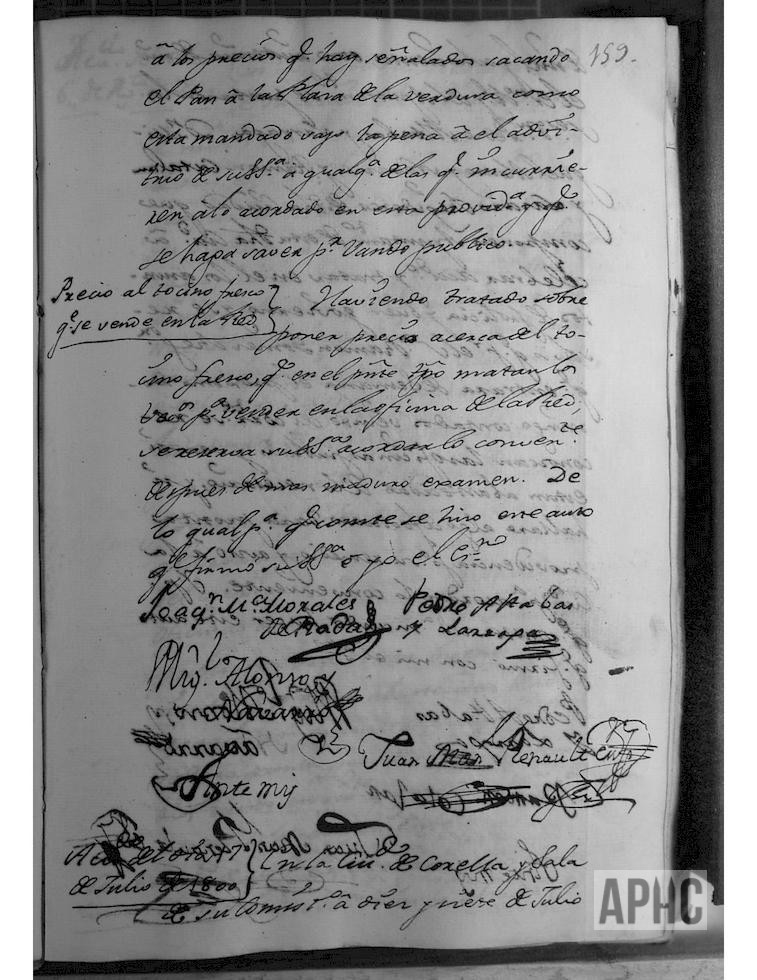 159.
â los precios q.e hay señalados sacando
el Pan â la Plaza de la verdura como
esta mandado vajo la pena â el advi-
trio de su SS.a a qualq.a de las q.e incurrie-
ren a lo acordado en esta provid.a y q.e
se haga saver p.r Vando publico.
Precio al tocino fresco
q.e se vende en la Red
Haviendo tratado sobre
poner precio acerca del to-
cino fresco, q.e en el pñte tpo matan los
vecos p.a vender en la oficina de la Red,
se reserva su SS.a acordar lo conven.te
despues de mas maduro examen. De
lo qual p.a q.e conste se hizo este auto
q.e firmó su SS.a e yo el Ess.no
Joaq.n M.a Morales
de Rada y
Pedro Attabas
y Larraga
Mig.l Alonso y
Navarro
Juan Mar Renault
Ante mi
Acto del dia 17
de Julio de 1800
En la Ciu.d de Corella y Sala
de su Comis.a â diez y siete de Julio
APHC